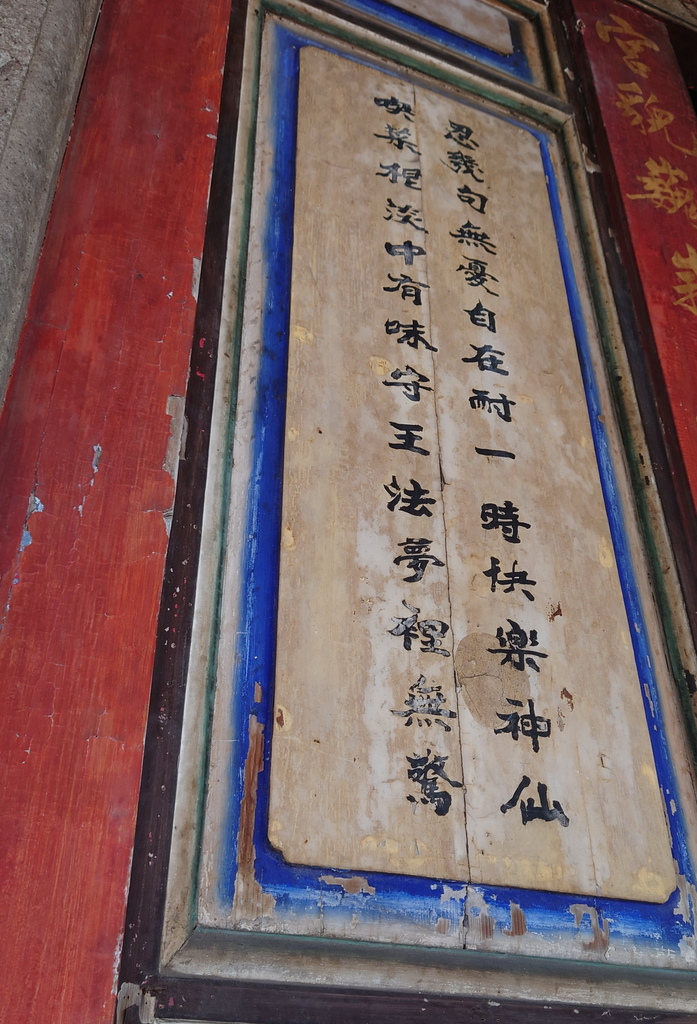 忍幾句無憂自在耐一時快樂神仙
喫菜根淡中有味守王法夢裡無驚